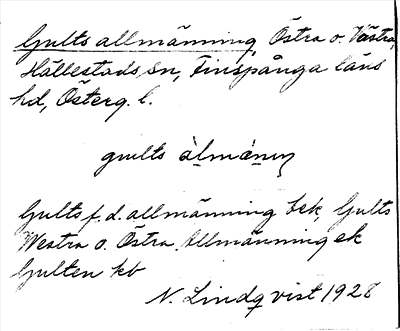 Gults allmänning, Östra o. Västra,
Hällestads sn, Finspånga läns
hd, Österg. l.
gults àlmäniŋ
Gults f. d. allmänning bek, Gults
Westra o. Östra Allmänning ek
Gulten kb
N. Lindqvist 1928